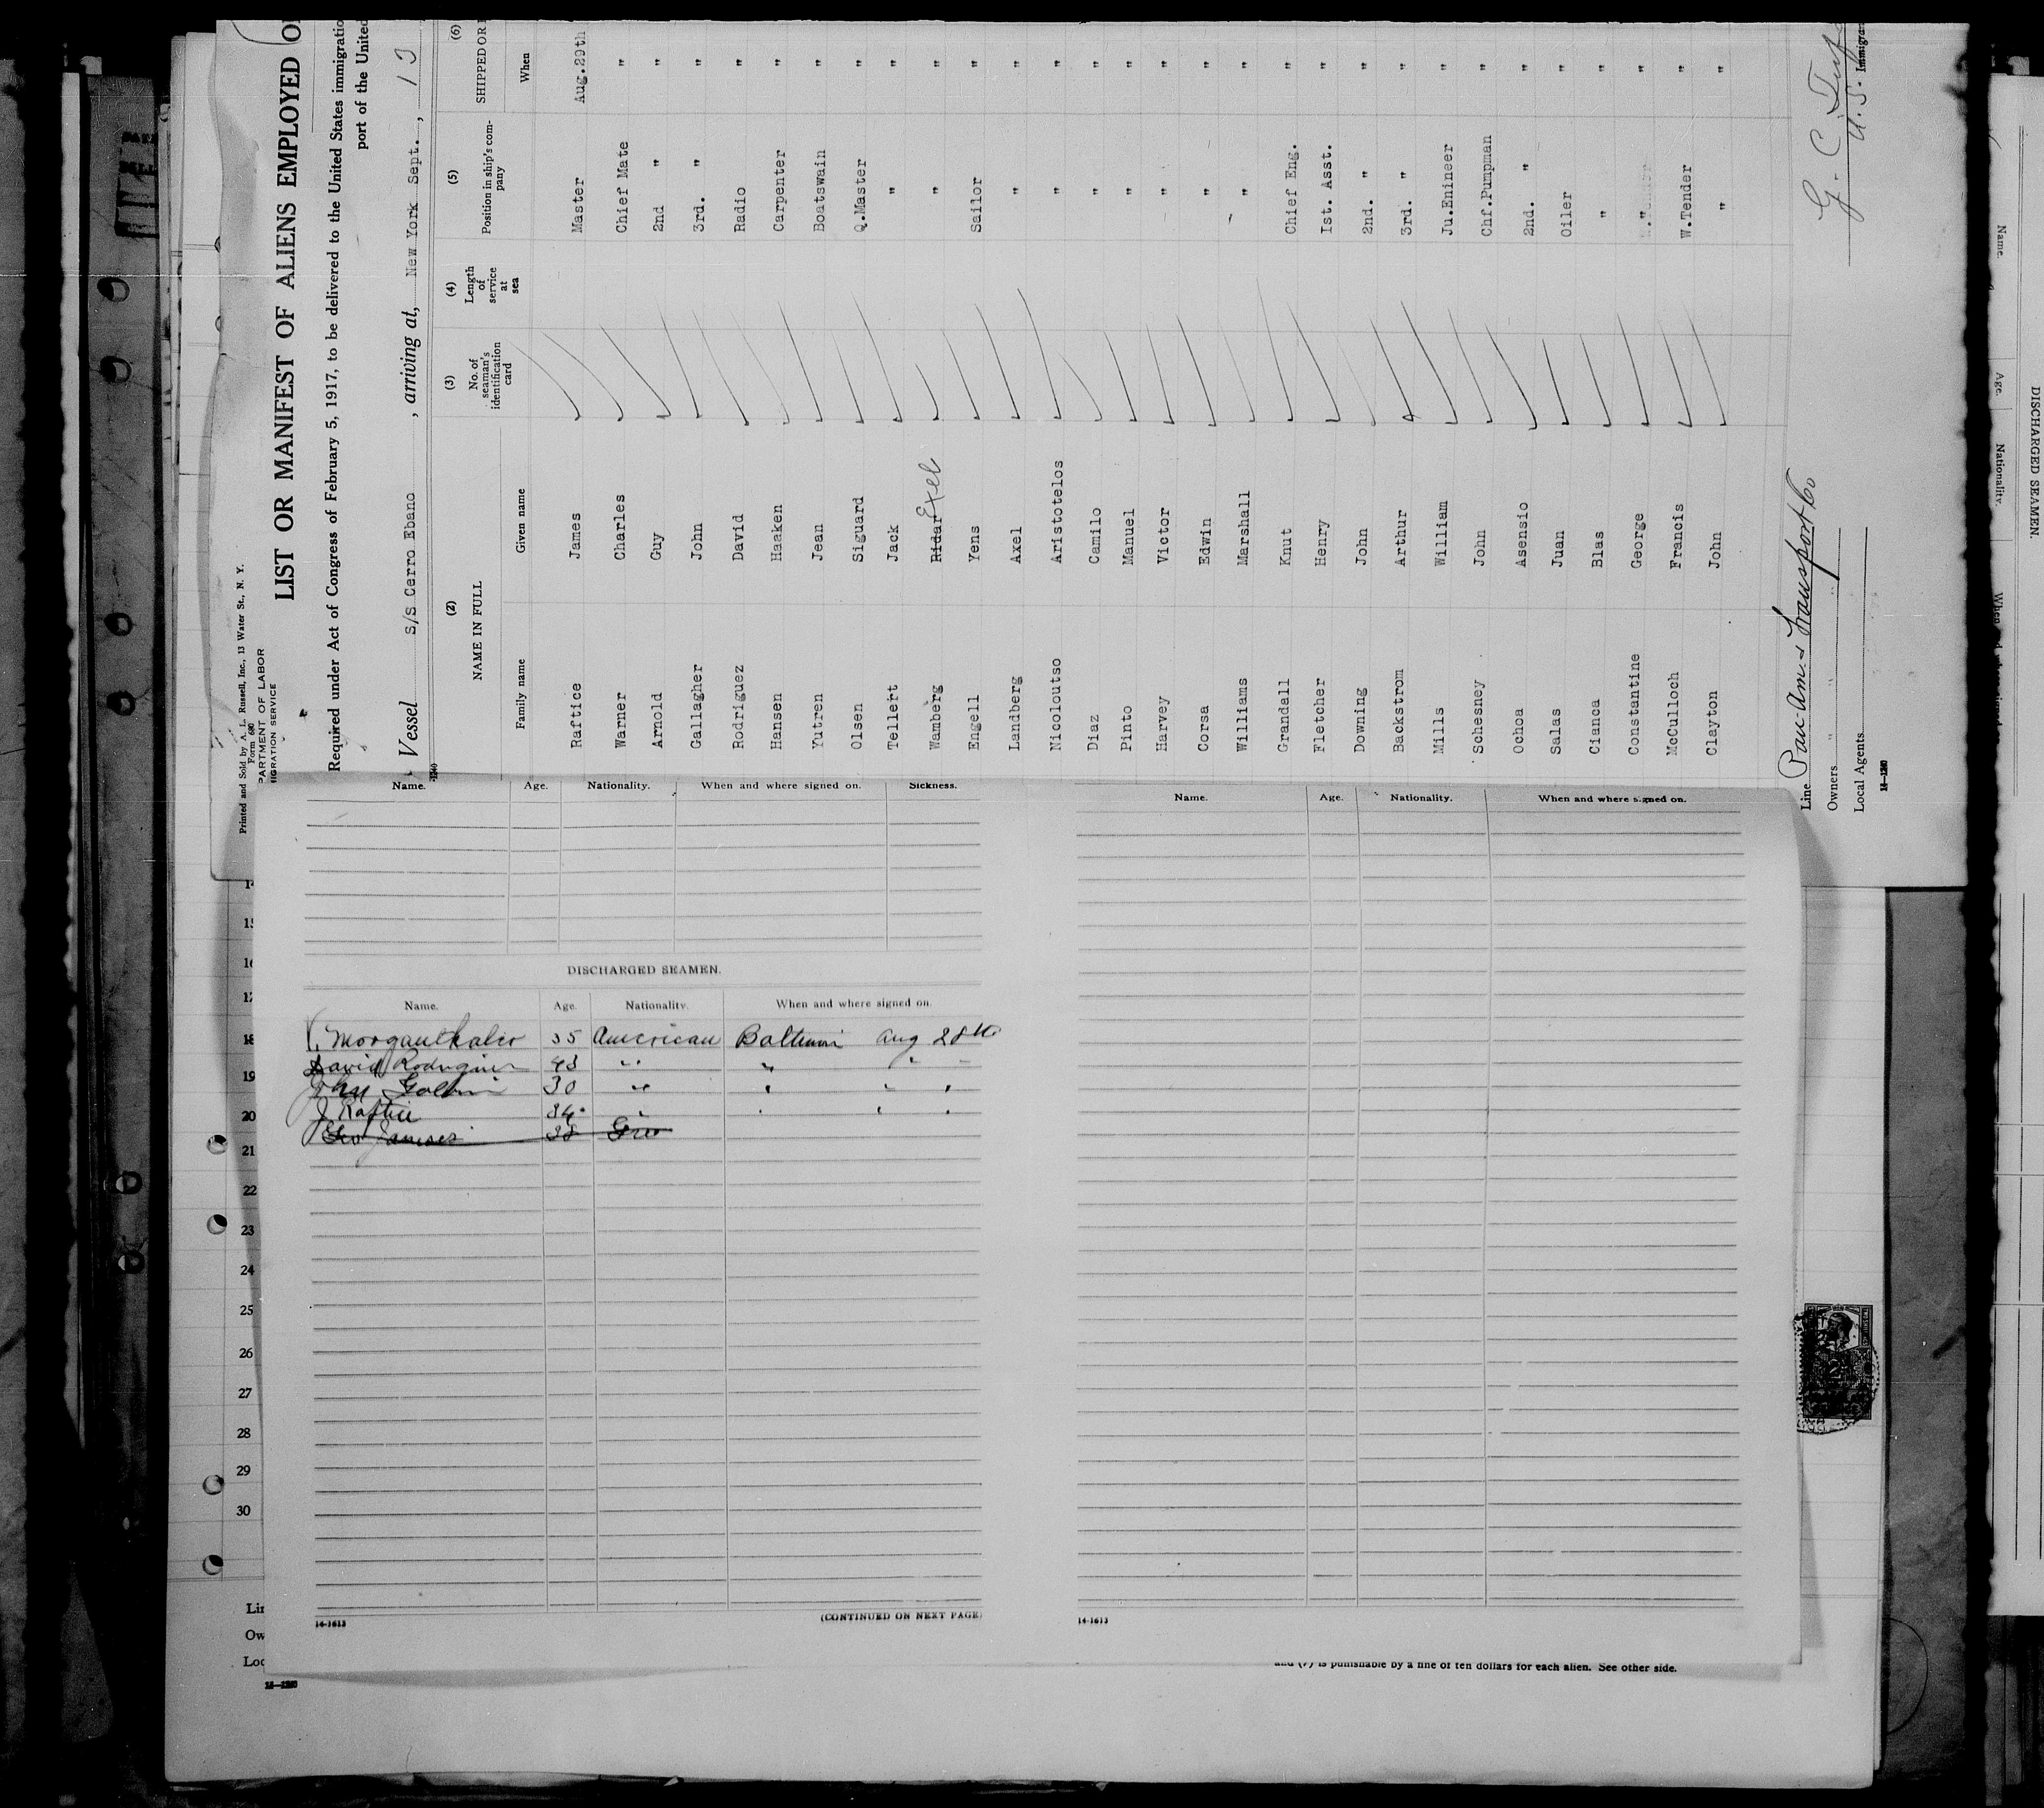 Printed and Sold by A. L. Russell, Inc., 13 Water St., N. Y.
Form 680
PARTMENT OF LABOR
IGRATION SERVICE
LIST OR MANIFEST OF ALIENS EMPLOYED O
Required under Act of Congress of February 5, 1917, to be delivered to the United States immigratio
port of the United
Vessel S/S Cerro Ebano, arriving at, New York Sept., 13
(2) (3) (4) (5) (6)
NAME IN FULL No. of seaman's identification card Length of service at sea Position in ship's company SHIPPED OR
Family name Given name When
Raftice James Master Aug.29th
Warner Charles Chief Mate "
Arnold Guy 2nd " "
Gallagher John 3rd. " "
Rodriguez David Radio "
Hansen Haaken Carpenter "
Yutren Jean Boatswain "
Olsen Siguard Q.Master "
Tellert Jack " "
Wamberg Ridar Exel " "
Engell Yens Sailor "
Landberg Axel " "
Nicoloutso Aristotelos " "
Diaz Camilo " "
Pinto Manuel " "
Harvey Victor " "
Corsa Edwin " "
Williams Marshall " "
Grandall Knut Chief Eng. "
Fletcher Henry 1st. Asst. "
Downing John 2nd. " "
Backstrom Arthur 3rd. " "
Mills William Ju.Enineer "
Schesney John Chf.Pumpman "
Ochoa Asensio 2nd. " "
Salas Juan Oiler "
Cianca Blas " "
Constantine George " "
McCulloch Francis W.Tender "
Clayton John " "
Line Pan-Am. & Transport Co
Owners " "
Local Agents
14-1240
G. C.
U. S. Immigra
Name. Age. Nationality. When and where signed on. Sickness.
DISCHARGED SEAMEN.
Name. Age. Nationality. When and where signed on.
Morganthaler 35 American Baltimore Aug 28th
David Rodriguez 43 " " " "
30 " " " "
J Raftice 34 " " " "
Geo 38
14-1613 (CONTINUED ON NEXT PAGE)
Name. Age. Nationality. When and where signed on.
14-1613
15
16
17
18
19
20
21
22
23
24
25
26
27
28
29
30
Lin
Ow
Loc
14-1240
and (7) is punishable by a fine of ten dollars for each alien. See other side.
DISCHARGED SEAMEN.
Name. Age. Nationality.